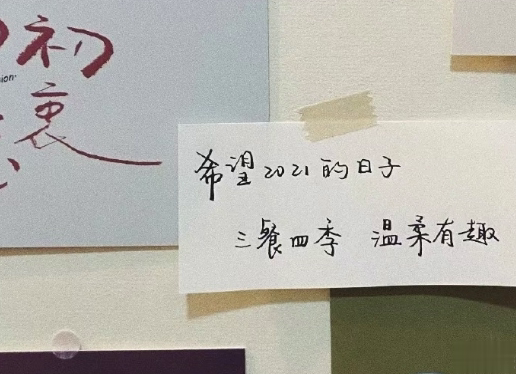 初
衷
ion.
希望2021的日子
三餐四季 温柔有趣